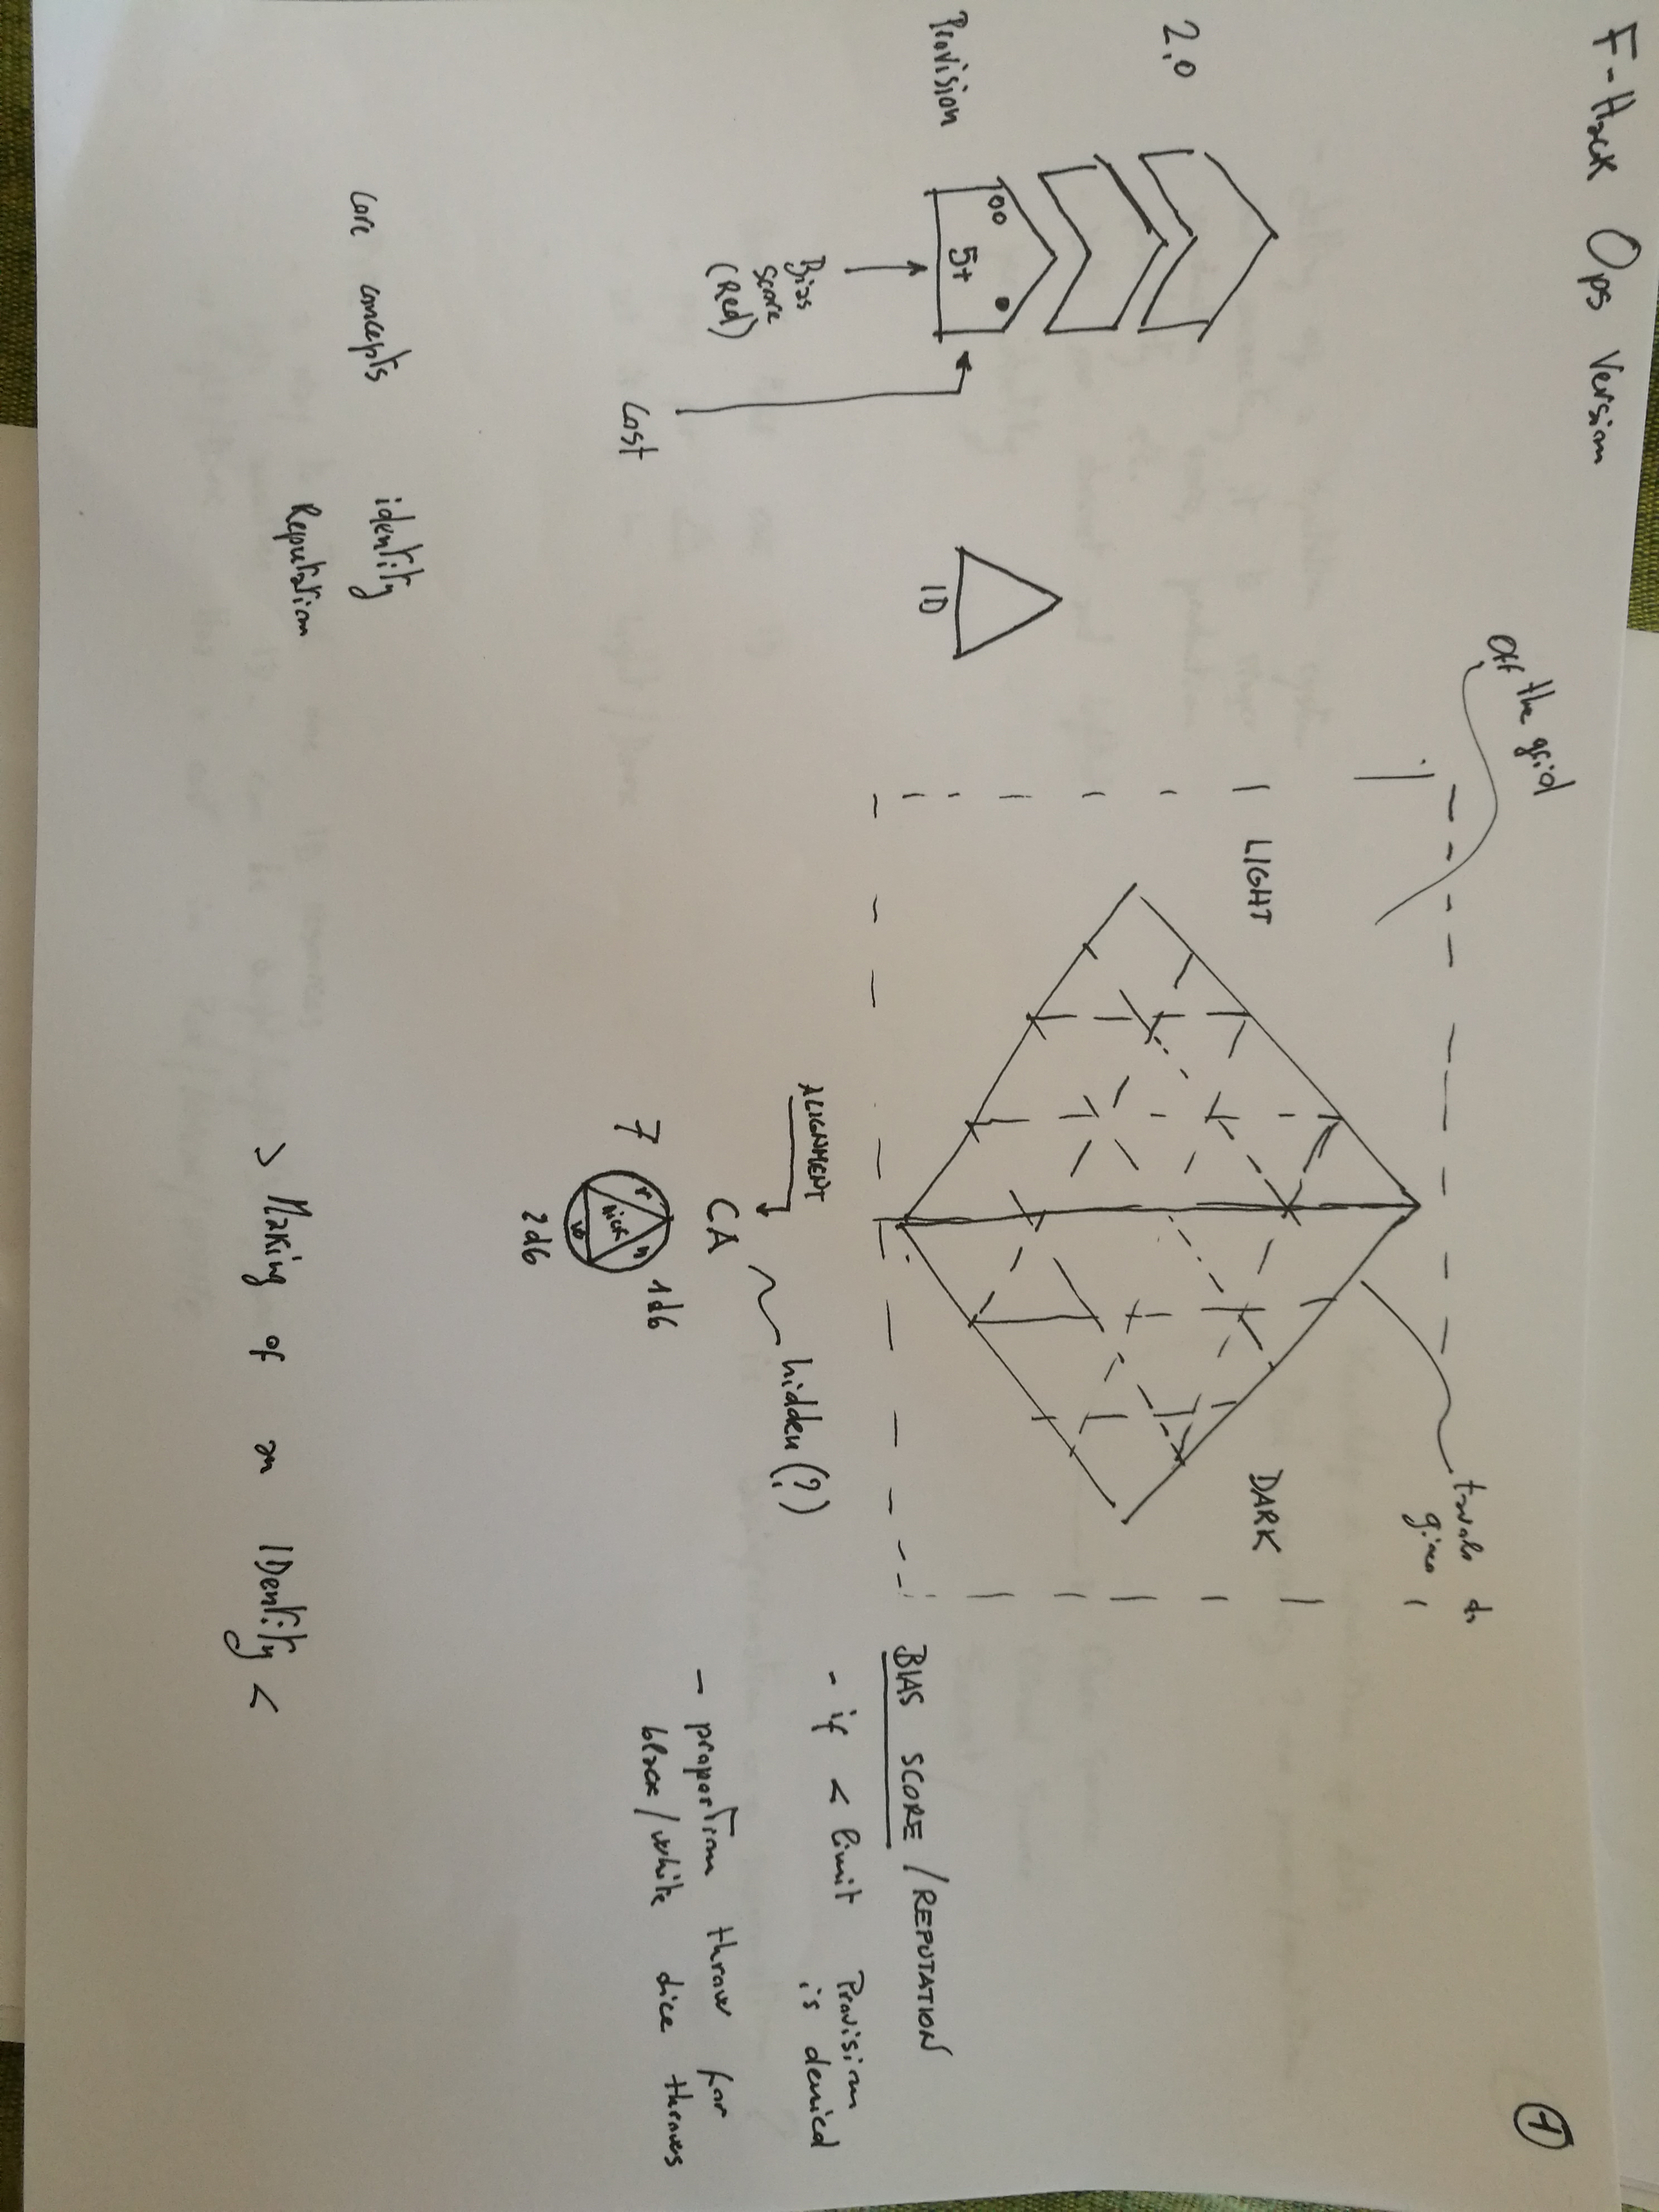 F-Hack Ops Version
1
2.0
Provision
5+
Bias
score
(Red)
Cost
ID
Off the grid
LIGHT
DARK
ALIGNMENT
CA
hidden (?)
7
nick
1d6
2d6
BIAS SCORE / REPUTATION
- if < limit Provision
is denied
- proportion thrower for
black/white dice throws
core concepts
identity
Reputation
> Making of an IDentity <